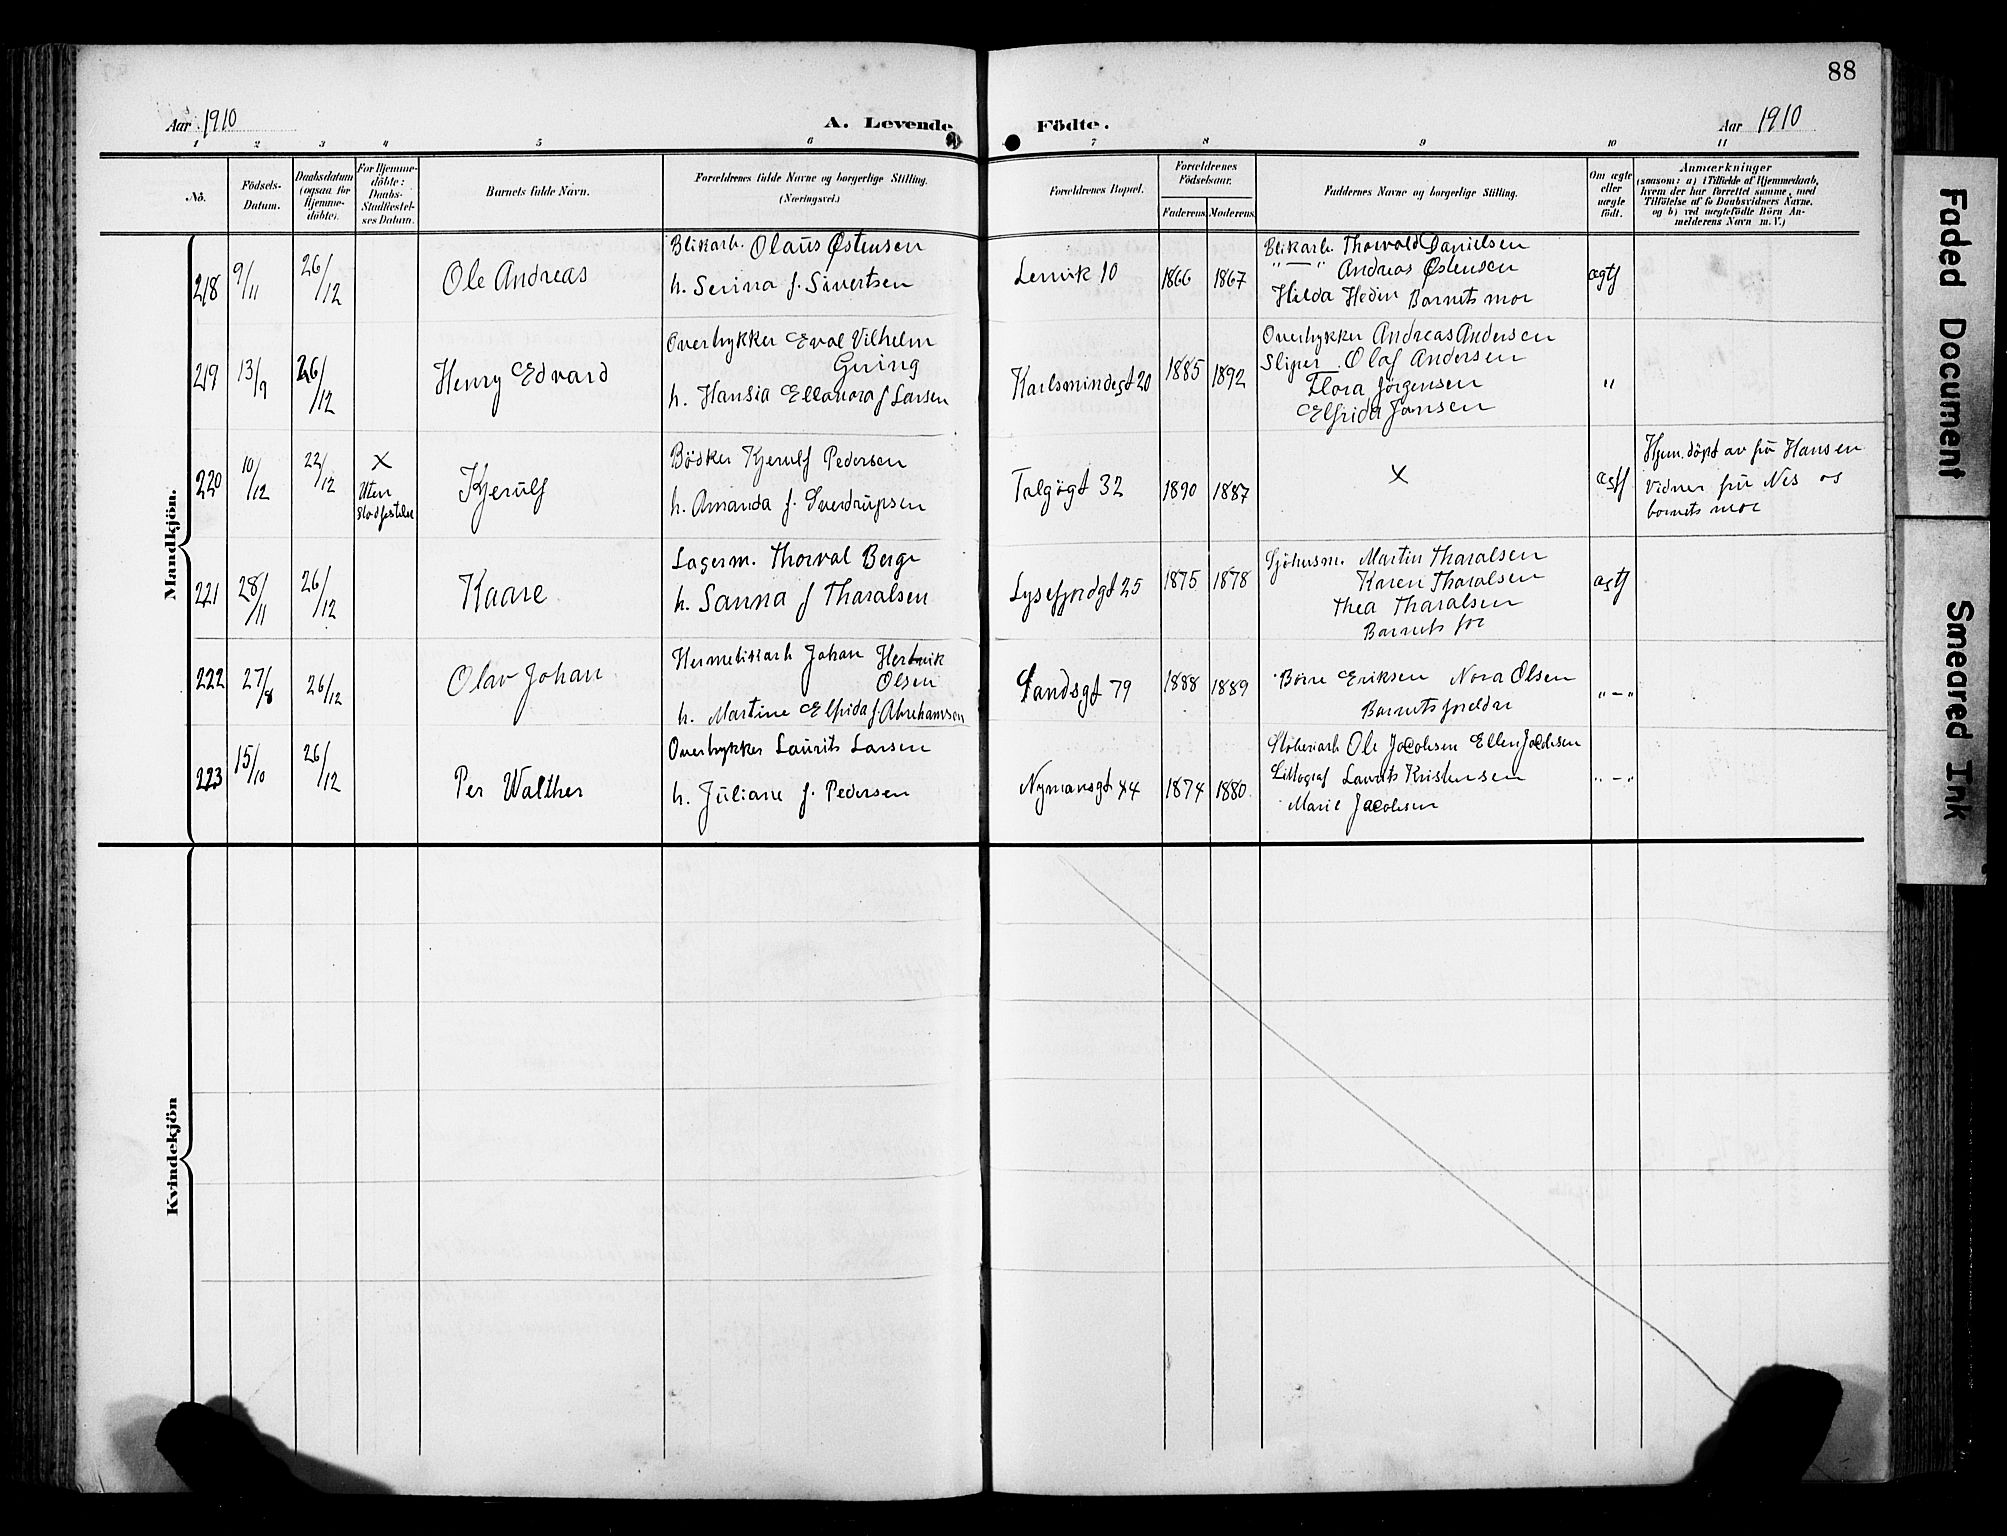 88
Aar 1910
A. Levende Födte.
Aar 1910
1 2 3 4 5 6 7 8 9 10 11
No.
Födsels-Datum.
Daabsdatum (ogsaa for Hjemme-döbte).
For Hjemme-döbte: Daabs-Stadfæstel-ses Datum.
Barnets fulde Navn.
Forældrenes fulde Navne og borgerlige Stilling.
(Næringsvei.)
Forældrenes Bopæl.
Forældrenes Födselsaar.
Faderens. Moderens.
Faddernes Navne og borgerlige Stilling.
Om ægte eller uægte födt.
Anmærkninger
(saasom: a) i Tilfælde af Hjemmedaab,
hvem der har forrettet samme, med
Tilföielse af to Daabsvidners Navne.
og b) ved uægtefödte Börn An-
melderens Navn m. V.)
Mandkjön.
218 9/11 26/12
Ole Andreas
Blikarb. Olaus Østensen
h. Serina f. Sivertsen
Lervik 10 1866 1867
Blikarb. Thorvald Danielsen
" — " Andreas Østensen
Hilda Hedin Barnets mor
ægtf
219 13/9 26/12
Henry Edvard
Overhykker Eval Vilhelm
Gering
h. Hansia Ellonora f Larsen
Karlsmindegt 20 1885 1892
Overhykker Andreas Andersen
Sliper Olaf Andersen
Flora Jørgensen
Elfrida Jansen
"
220 10/12 22/12
x
Uten
Stadfestelse
Kjerulf
Bödker Kjerulf Pedersen
h. Amanda f. Sverdrupsen
Talgögt 32 1890 1887
x
ægtf
Hjem.döpt av fru Hansen
Vidner fru Nes og
barnets mor
221 28/11 26/12
Kaare
Lagerm. Thorval Berge
h. Sanna f Tharalsen
Lysefjordgt 25 1875 1878
Sjöhusm. Martin Tharalsen
Karen Tharalsen
Thea Tharalsen
Barnets far
ægtf
222 27/8 26/12
Olav Johan
Hermetikkarb Johan Hertvik
Olsen
h. Martine Elfrida f. Abrahamsen
Sandsgt 79 1888 1889
Börre Eriksen Nora Olsen
Barnets foreldre
" — "
223 15/10 26/12
Per Walther
Overhykker Laurits Larsen
h. Juliane f. Pedersen
Nymansgt 44 1874 1880
Stöberiarb Ole Jacobsen Ellen Jacobsen
Littograf Laurits Kristensen
Marie Jacobsen
" — "
Kvindekjön
Faded Document
Smeared Ink